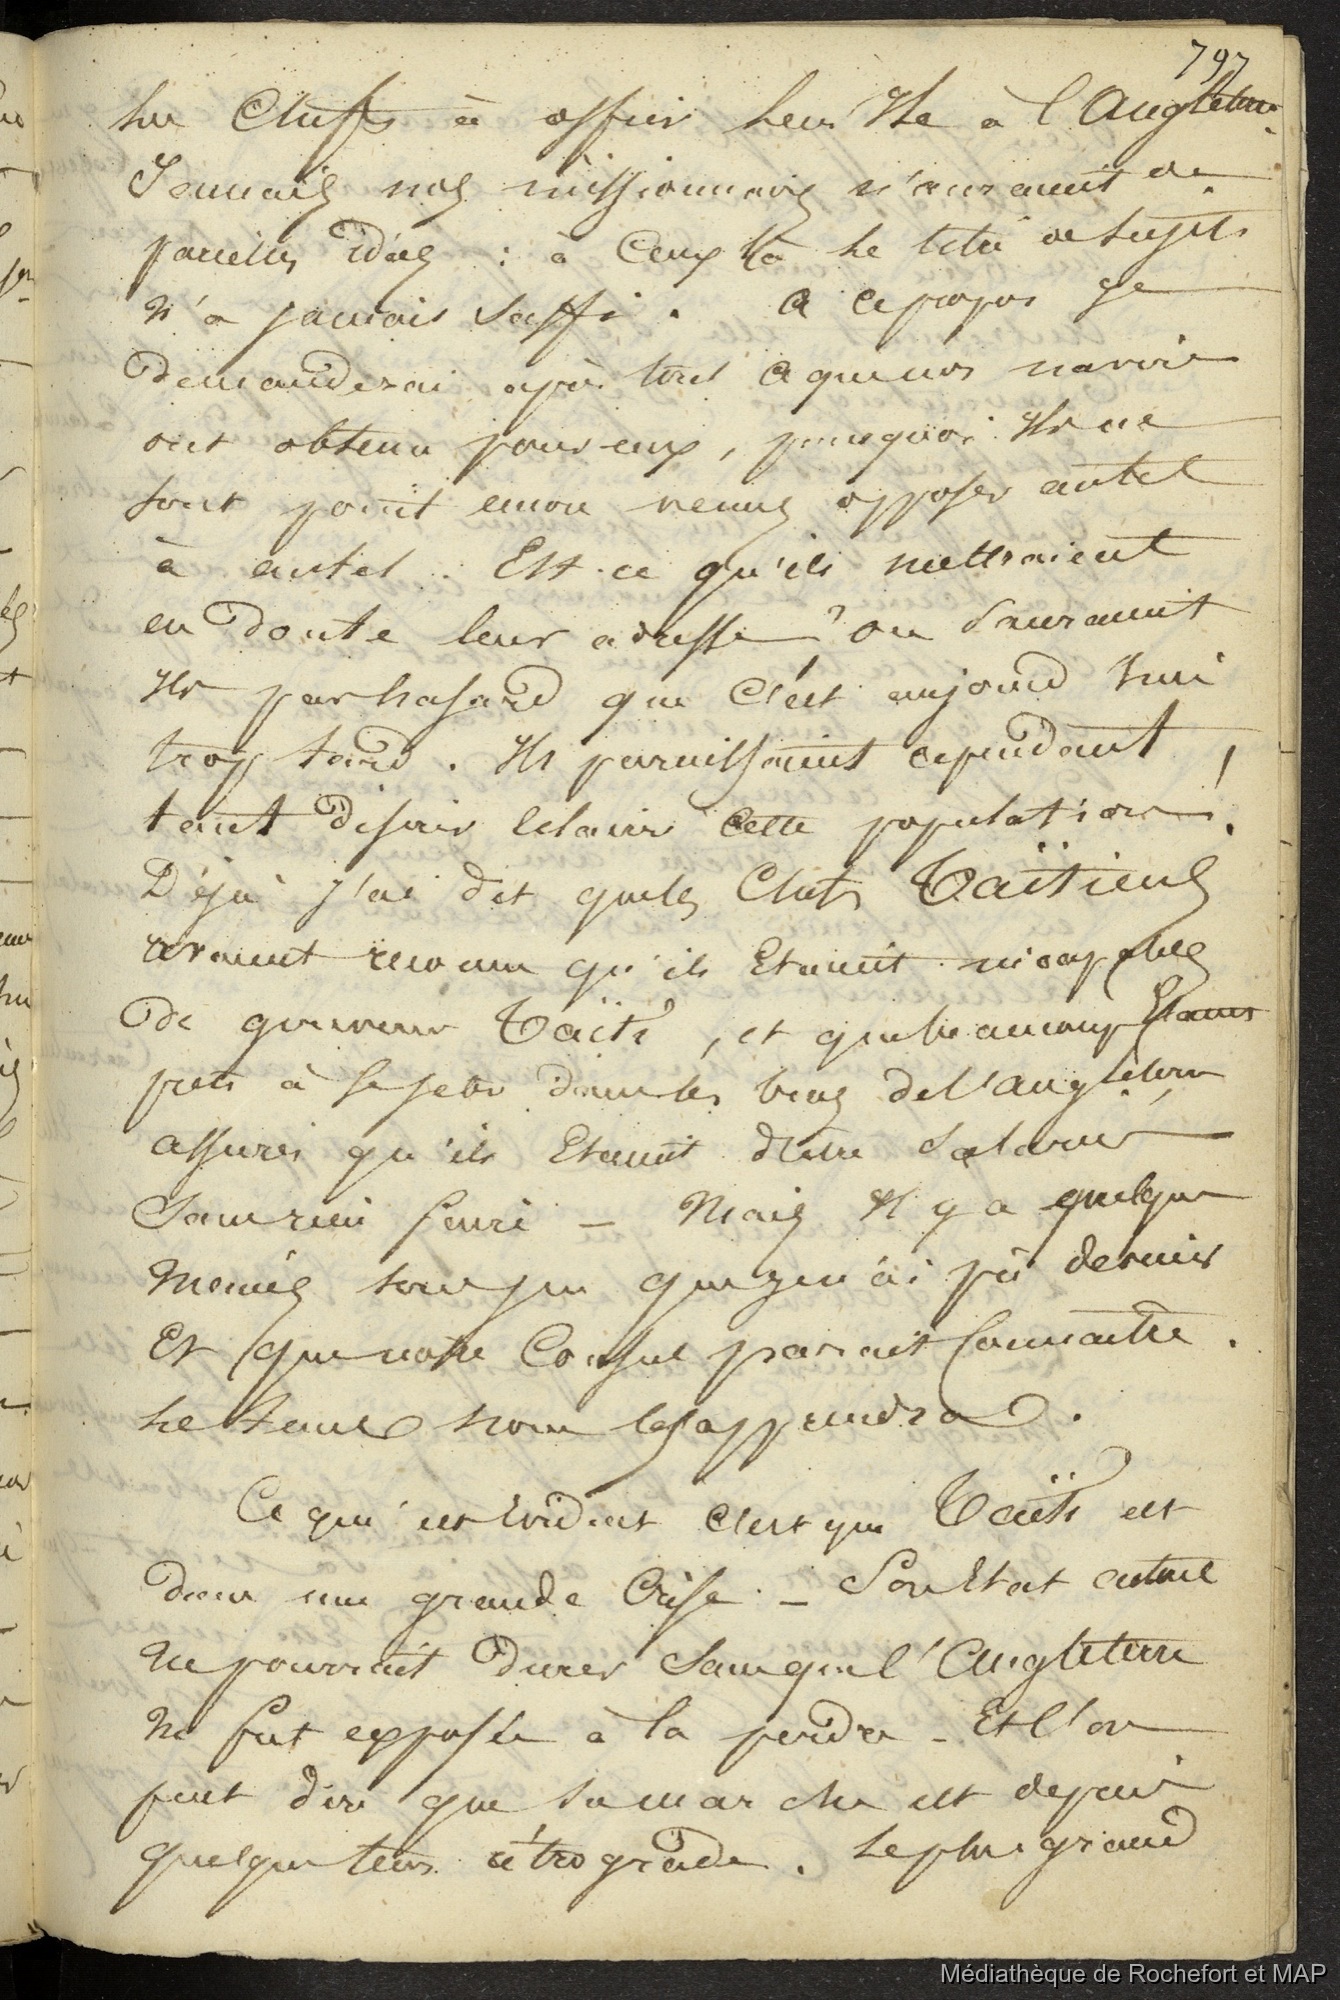 797
les Chefs à offrir leur Ile à l'Angleterre.
Jamais nos missionnaires n'auraient de
pareilles idées : à Ceux là le titre de sujets
n'a jamais suffi. a ce propos je
demanderai après tout ce que nos navires
ont obtenu pour eux, pourquoi Ils ne
sont point encore venus opposer autel
à autel. Est-ce qu'ils mettraient
en doute leur adresse ? ou Sauraient
Ils par hasard que C'est aujourd'hui
trop tard. Ils paraissaient cependant
tant désirer éclairer cette population !
Déjà j'ai dit que les Chefs Taïtiens
avaient reconnu qu'ils Etaient incapables
De gouverner Taïti, et que beaucoup Etaient
prets à se jeter dans les bras de l'angleterre
assurés qu'ils Etaient d'être Salariés
Sans rien faire — Mais Il y a quelque
menées sous jeu que je n'ai pû deviner
Et que notre Consul parait Connaitre.
Le tems nous les apprendra.
Ce qui est Evident c'est que Taïti est
dans une grande Crise. — Son Etat actuel
ne pourrait durer Sans que l'Angleterre
ne fut exposée à la perdre — Et l'on
peut dire que sa marche est depuis
quelque tems rétrograde. Le plus grand
Médiathèque de Rochefort et MAP